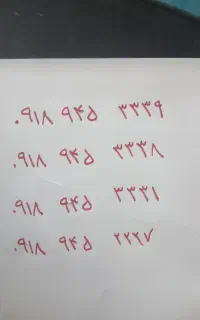 ۰۹۱۸ ۹۴۵ ۳۳۳۹
۰۹۱۸ ۹۴۵ ۳۳۳۸
۰۹۱۸ ۹۴۵ ۳۳۳۱
۰۹۱۸ ۹۴۵ ۲۲۲۷